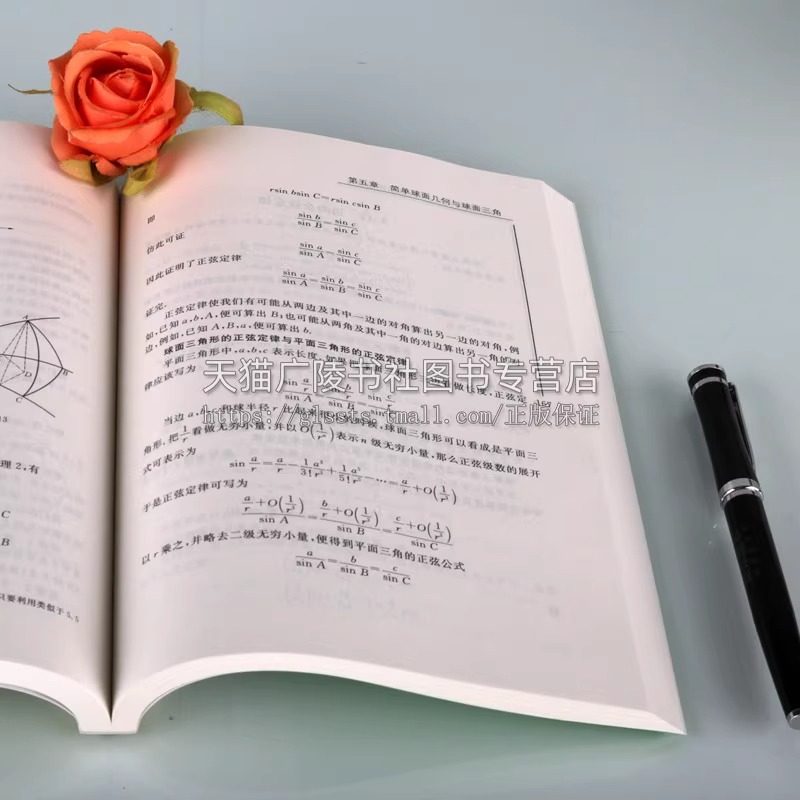 A
D
C
3
理2,有
C
B
只要利用类似于5.5
第五章 简单球面几何与球面三角
r sin b sin C = r sin c sin B
即
sin b / sin B = sin c / sin C
仿此可证
sin a / sin A = sin c / sin C
因此证明了正弦定律
sin a / sin A = sin b / sin B = sin c / sin C
证完.
正弦定律使我们有可能从两边及其中一边的对角算出另一边的对角,例
如,已知 a,b,A,便可算出 B;也可能从两角及其中一角的对边算出另一角的对
边,例如,已知 A,B,a,便可算出 b.
球面三角形的正弦定律与平面三角形的正弦定律
平面三角形中,a,b,c 表示长度,如果把球面三角形
看做长度,正弦定
律应该写为
天猫广陵书社图书专营店
https://glssts.tmall.com/正版保证
当边 a,
和球半径 r 比起来
球面三角形可以看成是平面三
角形,把 1/r 看做无穷小量,并以 O(1/rⁿ) 表示 n 级无穷小量,那么正弦级数的展开
式可表示为
sin a/r = a/r − 1/3! a³/r³ + 1/5! a⁵/r⁵ − … = a/r + O(1/r³)
于是正弦定律可写为
(a/r + O(1/r³)) / sin A = (b/r + O(1/r³)) / sin B = (c/r + O(1/r³)) / sin C
以 r 乘之,并略去二级无穷小量,便得到平面三角的正弦公式
a / sin A = b / sin B = c / sin C